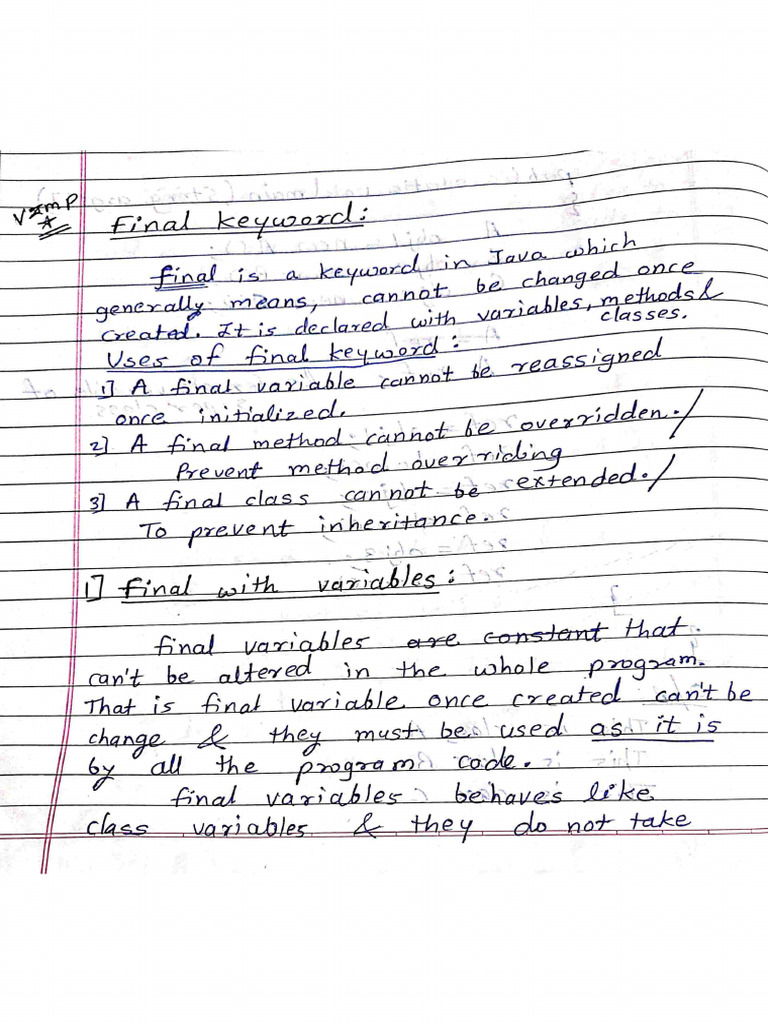 V Imp
Final keyword:
final is a keyword in Java which
generally means, cannot be changed once
created. It is declared with variables, methods &
classes.
Uses of final keyword:
1] A final variable cannot be reassigned
once initialized.
2] A final method cannot be overridden./
Prevent method overriding
3] A final class cannot be extended./
To prevent inheritance.
1] final with variables:
final variables are constant that
can't be altered in the whole program.
That is final variable once created can't be
change & they must be used as it is
by all the program code.
final variables behaves like
class variables & they do not take